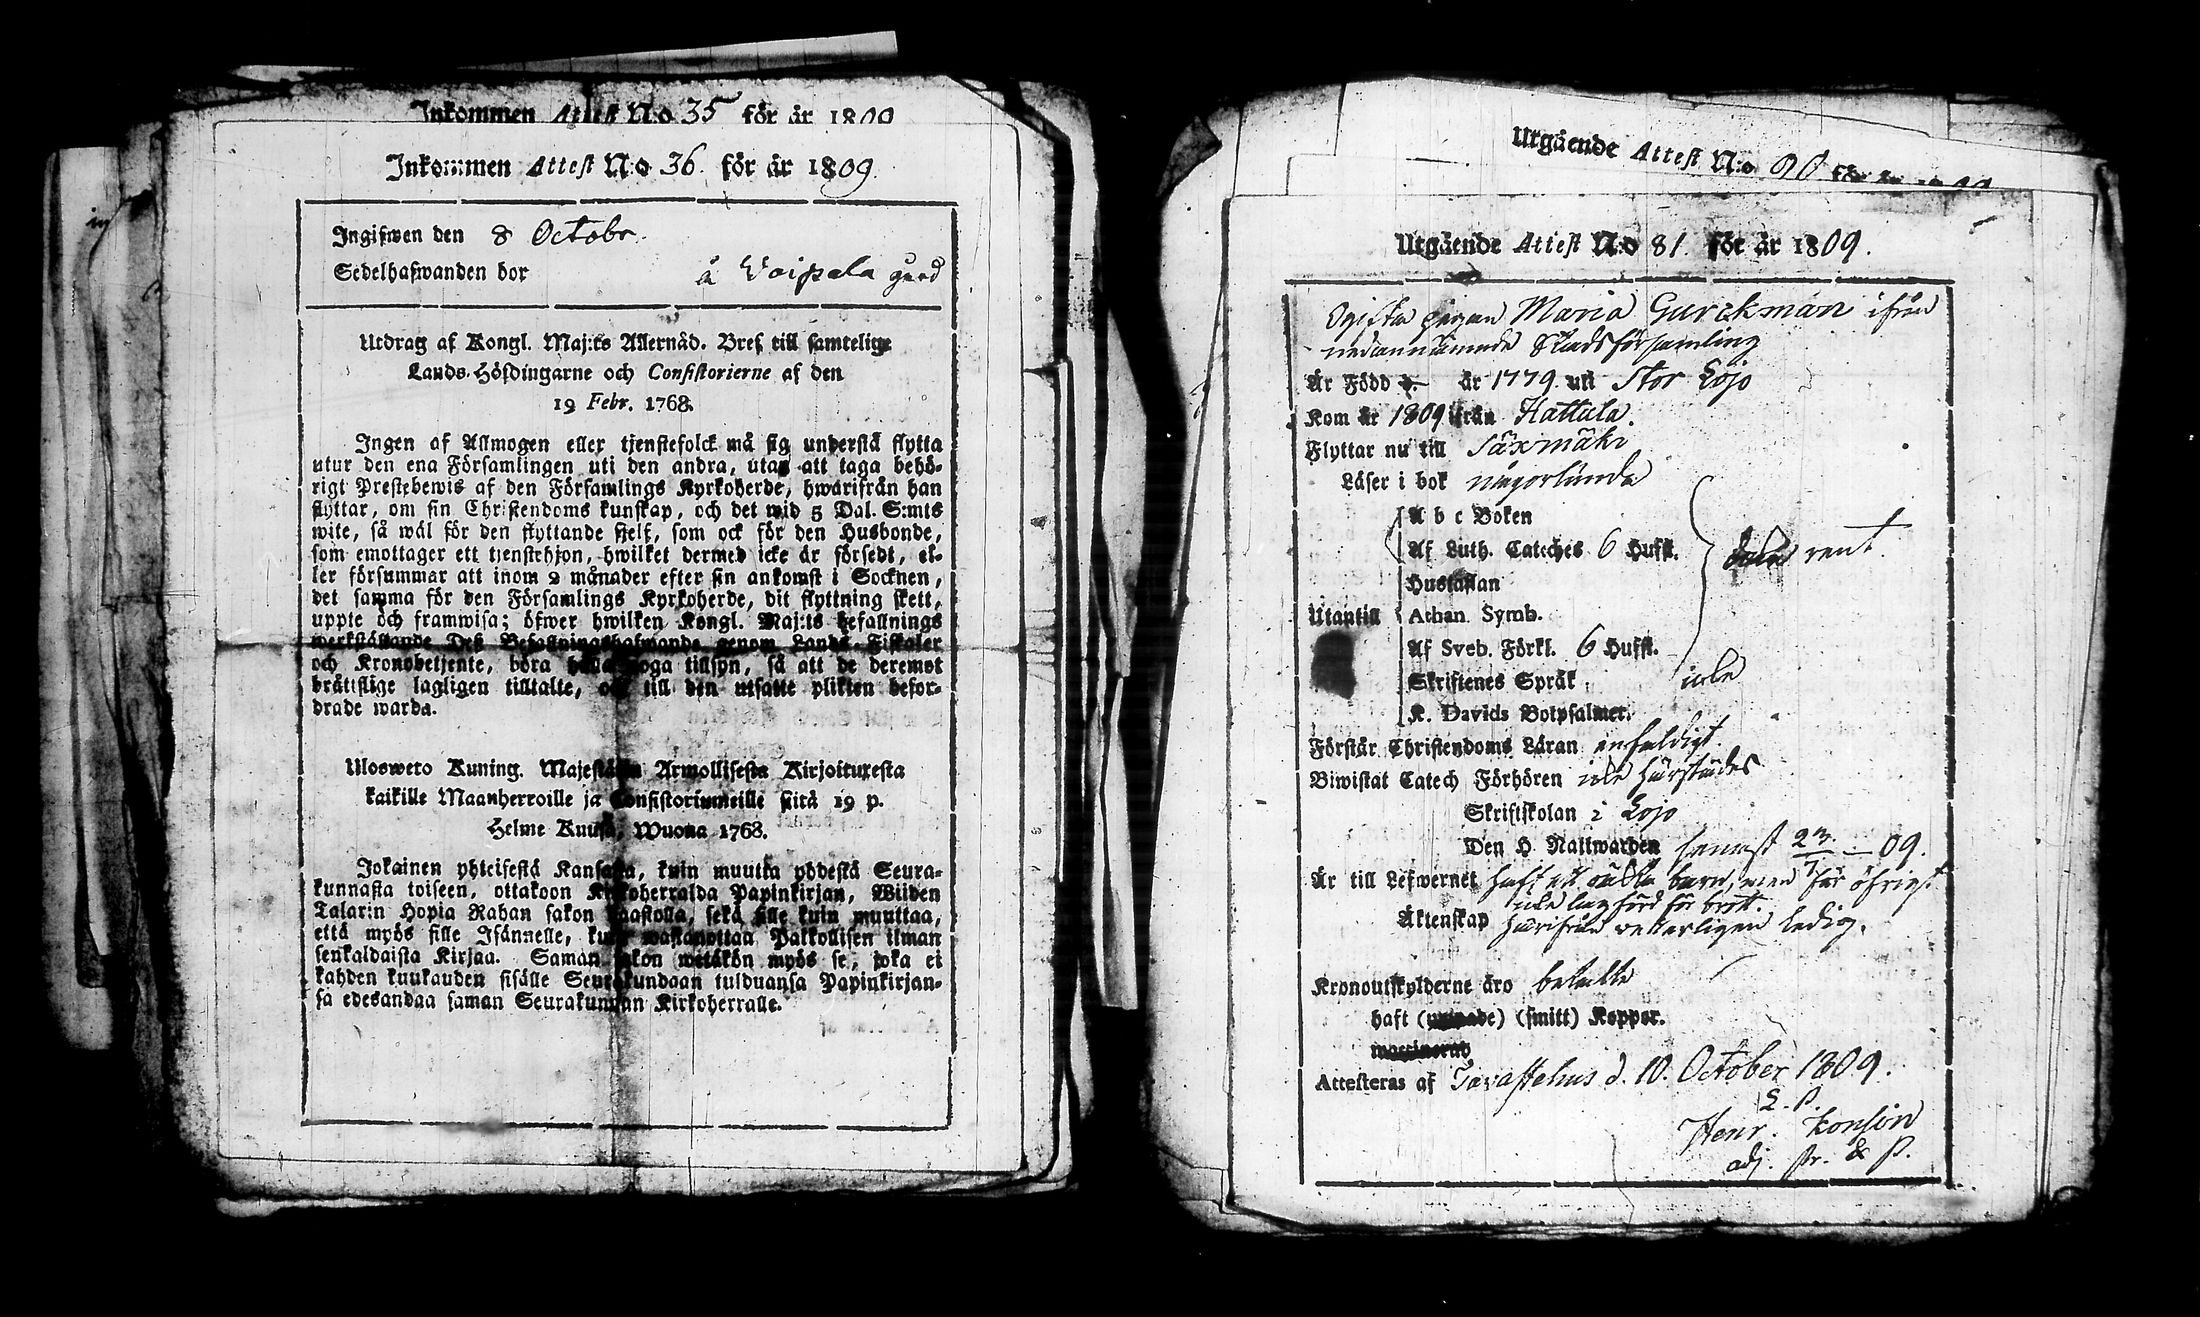 Inkommen Attest N:o 35 för år 1809
Inkommen Attest N:o 36. för år 1809.
Ingifwen den 8 Octobr.
Sedelhafwanden bor å Voipala gård
Utdrag af Kongl. Maj:ts Allernåd. Bref till samtelige
Lands-Höfdingarne och Consistorierne af den
19 Febr. 1768.
Ingen af Allmogen eller tjenstefolck må sig understå flytta
utur den ena Församlingen uti den andra, utan att taga behö-
rigt Prestebewis af den Församlings Kyrkoherde, hwarifrån han
flyttar, om sin Christendoms kunskap, och det wid 5 Dal. S:mts
wite, så wäl för den flyttande sjelf, som ock för den Husbonde,
som emottager ett tjenstehjon, hwilket dermed icke är försedt, el-
ler försummar att inom 2 månader efter sin ankomst i Socknen,
det samma för den Församlings Kyrkoherde, dit flyttning skett,
uppte och framwisa; öfwer hwilken Kongl. Maj:ts befallnings
werkställande Deß Befallningshafwande genom Lands-Fiskaler
och Kronobetjente, böra hålla noga tillsyn, så att de deremot
bråttslige lagligen tilltalte, och till den utsatte plikten befor-
drade warda.
Ulosweto Kuning. Majestätin Armollisesta Kirjoituxesta
kaikille Maanherroille ja Consistoriumeille siitä 19 p.
Helme Kuusa, Wuona 1768.
Jokainen yhteisestä Kansasta, kuin muutta yhdestä Seura-
kunnasta toiseen, ottakoon Kirkoherralda Papinkirjan, Wiiden
Talarin Hopia Rahan sakon haastolla, sekä sille kuin muuttaa,
että myös sille Isännelle, kuin wastanottaa Palkollisen ilman
senkaldaista Kirjaa. Saman sakon wetäkön myös se, joka ei
kahden kuukauden sisälle Seurakundaan tulduansa Papinkirjan-
sa edesandaa saman Seurakunnan Kirkoherralle.
Utgående Attest N:o
Utgående Attest N:o 81. för år 1809.
Ogifta pigan Maria Gurckman ifrån
nedannämnde Stadsförsamling
Är Född d. — år 1779 uti Stor Lojo
Kom år 1809 ifrån Hattula.
Flyttar nu till Säxmäki
Läser i bok någorlunda
A b c Boken
Af Luth. Cateches 6 Hufst. rent.
Hustaflan
Utantill Athan. Symb.
Af Sveb. Förkl. 6 Hufst.
Skriftenes Språk icke
K. Davids Botpsalmer.
Förstår Christendoms Läran enfaldigt.
Biwistat Catech Förhören icke härstädes
Skriftskolan i Lojo
Den H. Nattwarden senast 2/7 — 09.
Är till Lefwernet haft ett oäkta barn, men för öfrigt
icke lagförd för brott.
Äktenskap härifrån vetterligen ledig.
Kronoutskylderne äro betalte
haft (smitt) Koppor.
Attesteras af Tavastehus d. 10. October 1809.
L. P.
Henr. Konsin
adj. pr. & P.